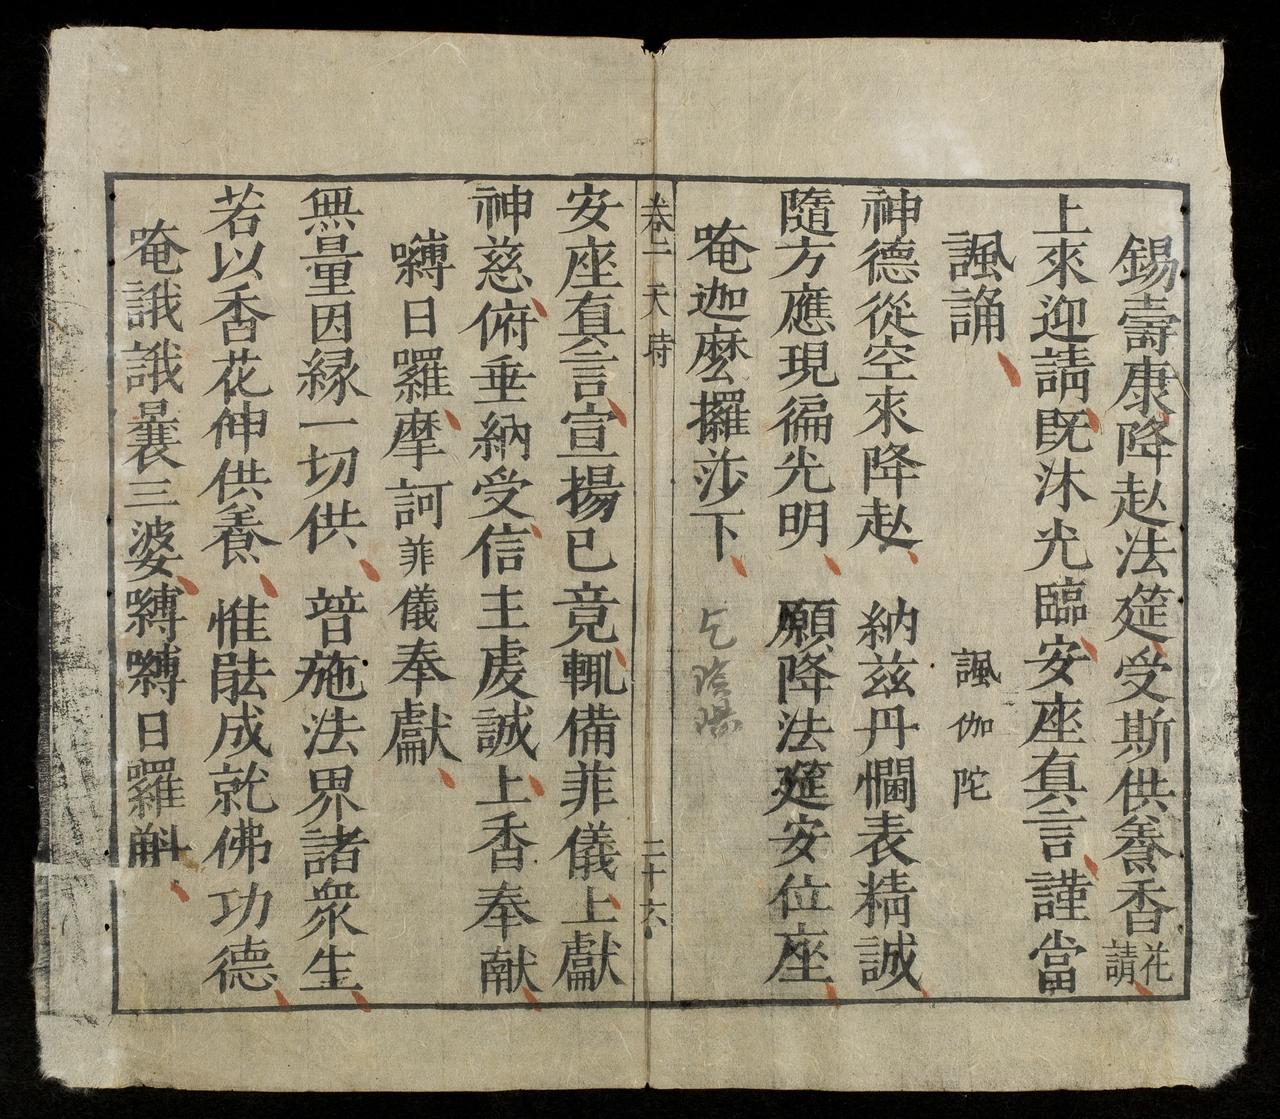 錫壽康降赴法筵受斯供養香花請
上來迎請旣沐光臨安座真言謹當
諷誦　諷伽陀
神德從空來降赴　納兹丹悃表精誠
隨方應現徧光明　願降法筵安位座
唵迦麽攞莎下
卷二　天時　二十六
安座真言宣揚已竟輒備菲儀上獻
神慈俯垂納受信主虔誠上香奉献
嚩日羅摩訶菲儀奉獻
無量因緣一切供　普施法界諸衆生
若以香花伸供養　惟能成就佛功德
唵誐誐曩三婆嚩嚩日囉斛